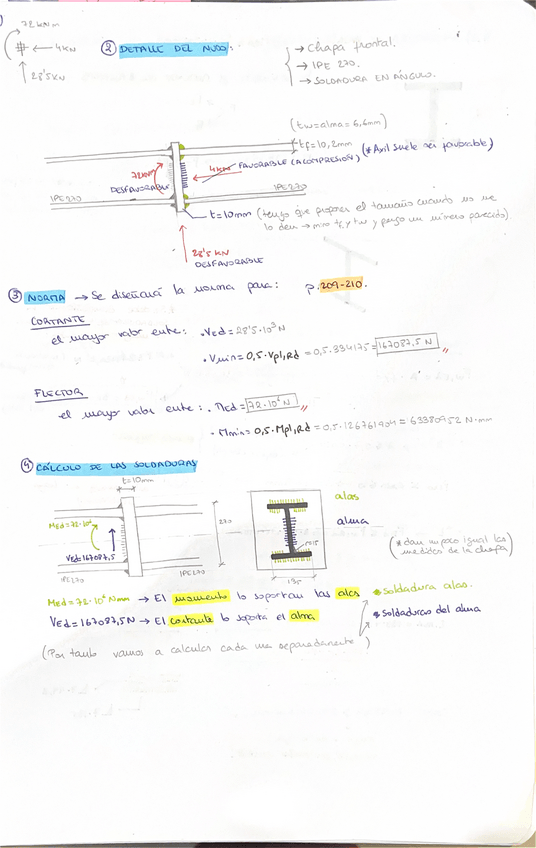 72 kNm
4kN
28'5kN
② DETALLE DEL NUDO:
→ Chapa frontal.
→ IPE 270.
→ SOLDADURA EN ÁNGULO.
(tw=alma = 6,6mm)
tf=10,2mm (*Axil suele ser favorable)
72kNm
4kN FAVORABLE (A COMPRESIÓN)
DESFAVORABLE
IPE270
IPE270
t=10mm (tengo que proponer el tamaño cuando no me
lo den → miro tf y tw y pongo un número parecido).
28'5 KN
DESFAVORABLE
③ NORMA → Se diseñará la norma para: p.209-210.
CORTANTE
el mayor valor entre: • VEd = 28'5·10³ N
• Vmin = 0,5·Vpl,Rd = 0,5·334175 = 167087,5 N
FLECTOR
el mayor valor entre: • MEd = 72·10⁶ N
• Mmin = 0,5·Mpl,Rd = 0,5·126761904 = 63380952 N·mm
④ CÁLCULO DE LAS SOLDADURAS
t=10mm
MEd=72·10⁶
VEd=167087,5
IPE270
IPE270
270
r=15
135
alas
alma
(*dan un poco igual las
medidas de la chapa)
MEd = 72·10⁶ Nmm → El momento lo soportan las alas *Soldadura alas.
VEd = 167087,5N → El cortante lo soporta el alma *Soldaduras del alma
(Por tanto vamos a calcular cada una separadamente)